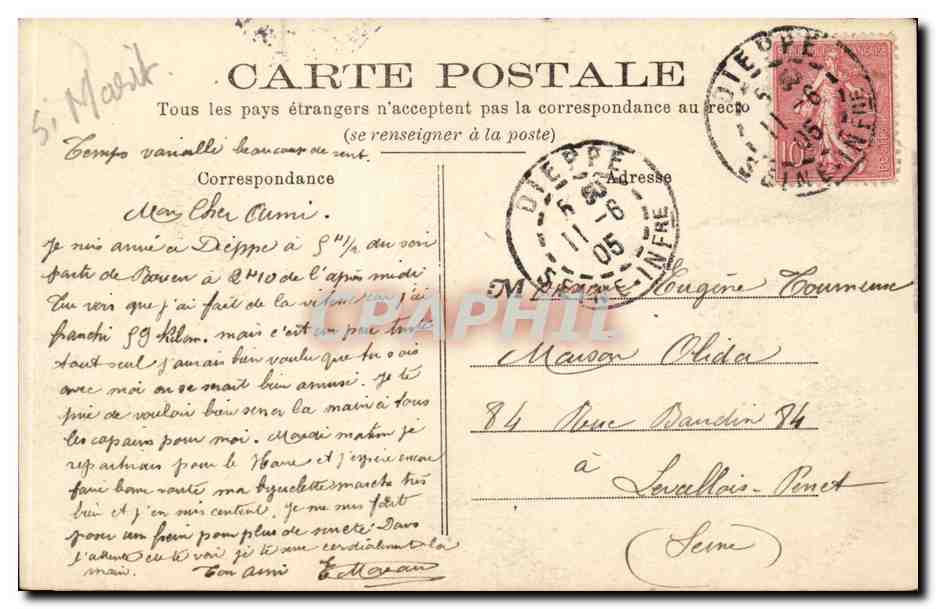 S, Marit.
CARTE POSTALE
Tous les pays étrangers n'acceptent pas la correspondance au recto
(se renseigner à la poste)
Temps variable beaucoup de vent.
Correspondance
Mon Cher Oumi.
Je suis arrivé a Dieppe à 5 H 1/2 du soir
parti de Rouen à 2 H 10 de l'après midi
Tu vois que j'ai fait de la vitesse car j'ai
franchi 59 kilom. mais c'est un peu triste
tout seul j'aurais bien voulu que tu sois
avec moi on se serait bien amusé. Je te
prie de vouloir bien serrer la main à tous
les copains pour moi. Mardi matin je
repartirais pour le Havre et j'espère encore
faire bonne route ma bicyclette marche très
bien et j'en suis content. Je me suis fait
poser un frein pour plus de sureté. Dans
l'attente de te voir je te serre cordialement la
main. Ton ami E Moreau
Adresse
M Eugène Tourneur
Maison Olida
84 Rue Baudin 84
à
Levallois-Perret
(Seine)
DIEPPE
5 E
11 -6
05
SEINE-INFRE
DIEPPE
5 E
11 -6
05
SEINE-INFRE
FRANÇAISE
10
CPAPHIL